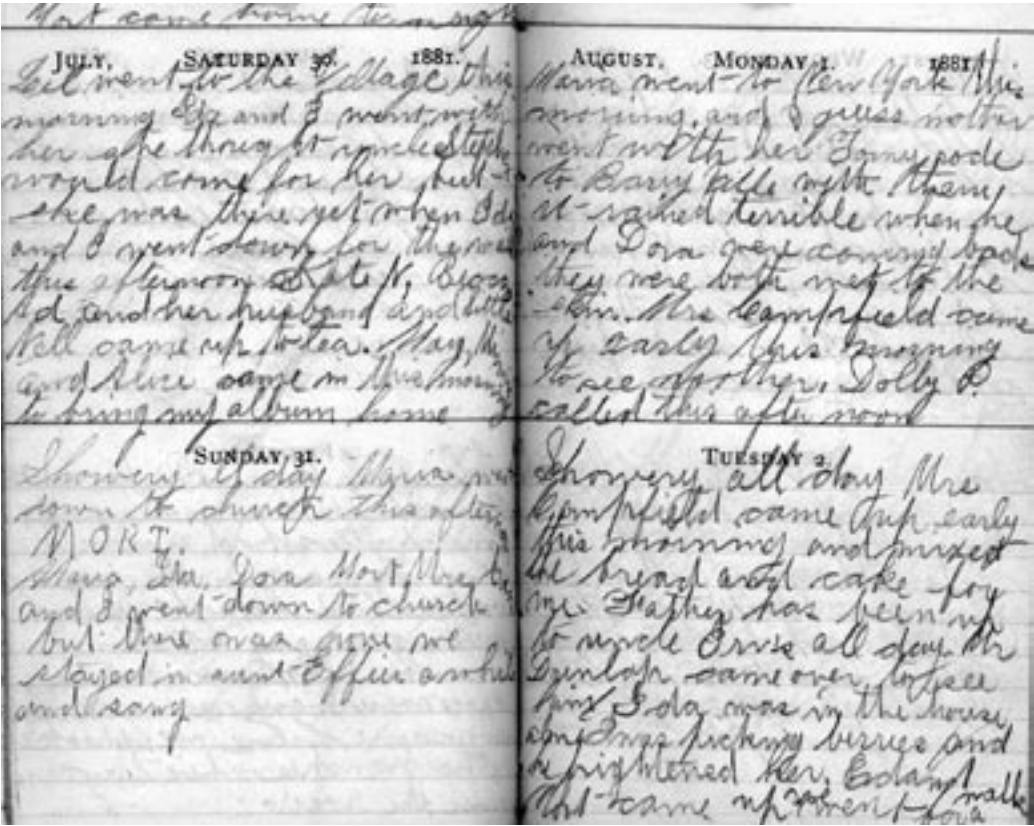 Mort came home to night
JULY, SATURDAY 30. 1881.
went to the Village this
morning Ida and I went with
her she thought uncle
would come for her but
she was there yet when Ida
and I went down for the
this afternoon Kate N,
and her husband and little
Nell came up to tea. May,
and Alice came in this morning
to bring my album home
SUNDAY 31.
Showery all day Maria
down to church this after
MORT.
Maria, Ida, Dora Mort, Mrs
and I went down to church
but there was none we
stayed in aunt Effies awhile
and sang
AUGUST, MONDAY 1. 1881.
Maria went to New York this
morning, and I guess mother
went with her rode
to with them
it rained terrible when he
and Dora were coming back
they were both wet to the
skin. Mrs Campfield came
up early this morning
to see mother. Dolly P.
called this after noon
TUESDAY 2.
Showery all day Mrs
Campfield came up early
this morning and mixed
the bread and cake for
me. Father has been up
to uncle all day. Mr
Dunlap came over to see
him, Ida was in the house
and I was picking berries and
he frightened her. Ed and
Mort came up we went for a walk